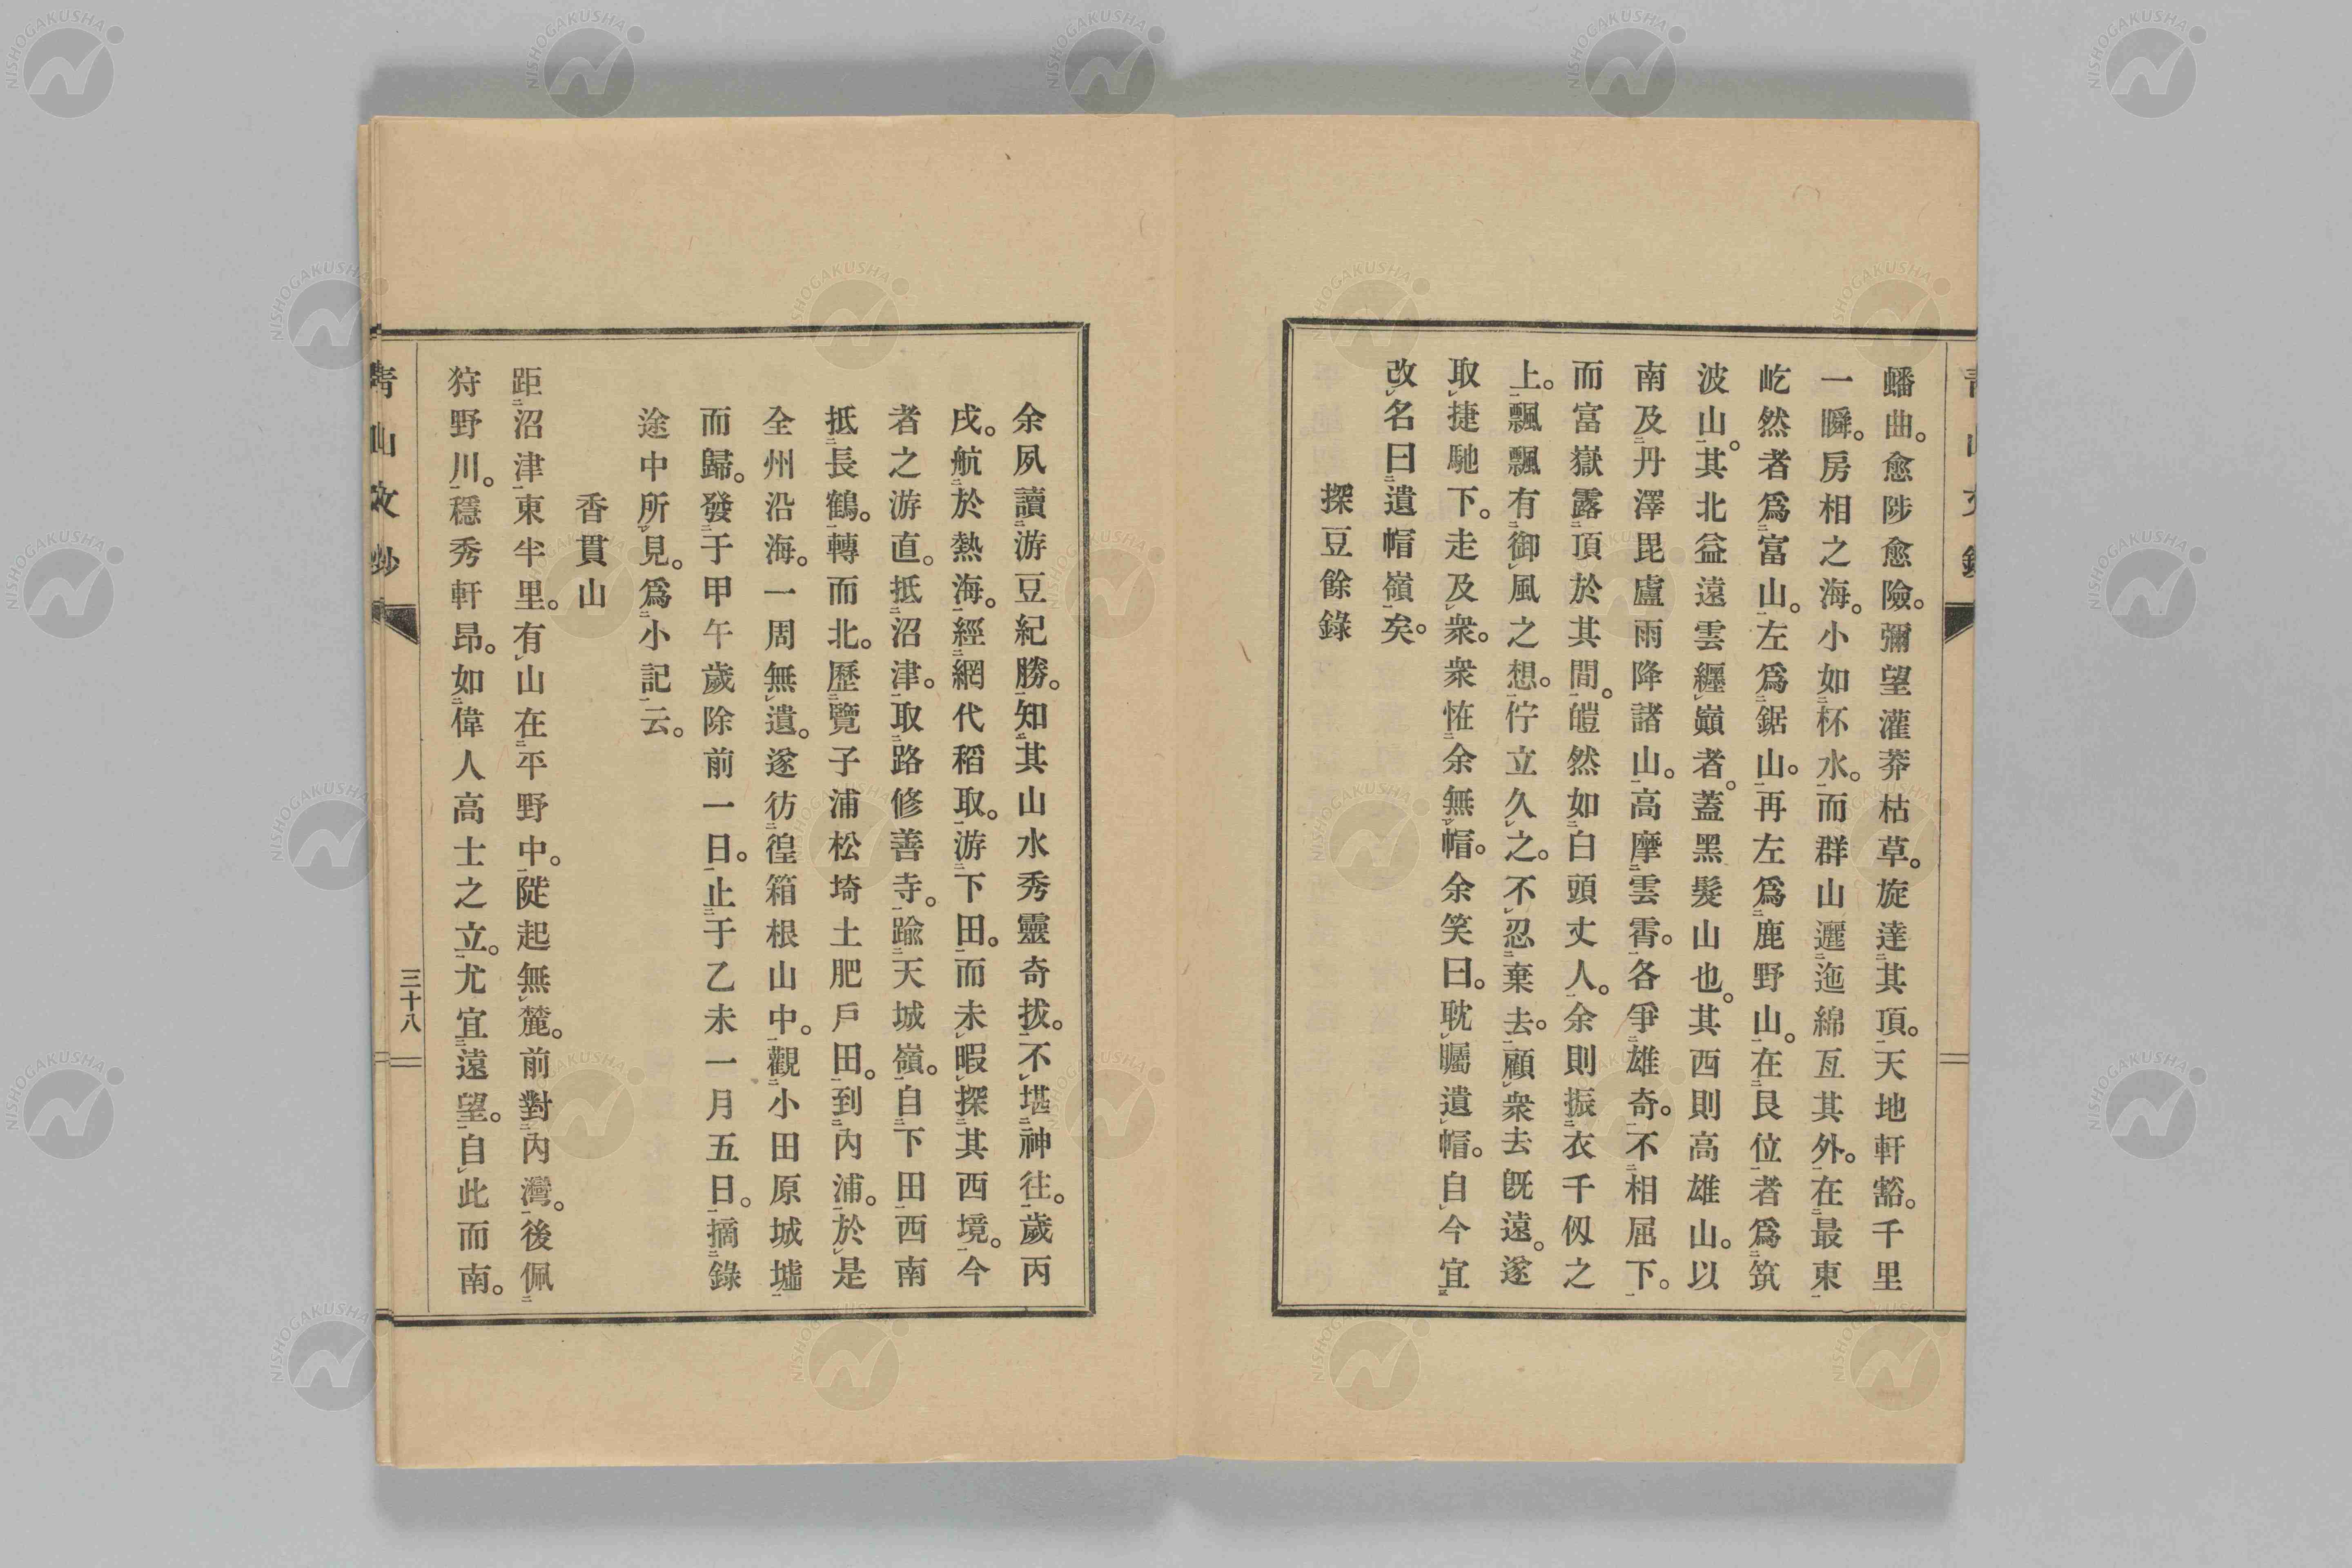 蟠曲。愈陟愈險。彌望灌莽枯草。旋達其頂。天地軒豁。千里
一瞬。房相之海。小如杯水。而群山邐迤綿亙其外。在最東
屹然者爲富山。左爲鋸山。再左爲鹿野山。在艮位者爲筑
波山。其北益遠雲纒巓者。蓋黑髮山也。其西則高雄山。以
南及丹澤毘盧雨降諸山。高摩雲霄。各爭雄奇。不相屈下。
而富嶽露頂於其間。皚然如白頭丈人。余則振衣千仭之
上。飄飄有御風之想。佇立久之。不忍棄去。顧衆去旣遠。遂
取捷馳下。走及衆。衆恠余無帽。余笑曰。耽矚遺帽。自今宜
改名曰遺帽嶺矣。
探豆餘錄
余夙讀游豆紀勝。知其山水秀靈奇拔。不堪神往。歲丙
戌。航於熱海。經網代稻取。游下田。而未暇探其西境。今
者之游直。抵沼津。取路修善寺。踰天城嶺。自下田西南
抵長鶴。轉而北。歷覽子浦松埼土肥戶田。到內浦。於是
全州沿海。一周無遺。遂彷徨箱根山中。觀小田原城墟
而歸。發于甲午歲除前一日。止于乙未一月五日。摘錄
途中所見。爲小記云。
香貫山
距沼津東半里。有山在平野中。陡起無麓。前對內灣。後佩
狩野川。穩秀軒昂。如偉人高士之立。尤宜遠望。自此而南。
青山文鈔
三十八
NISHOGAKUSHA